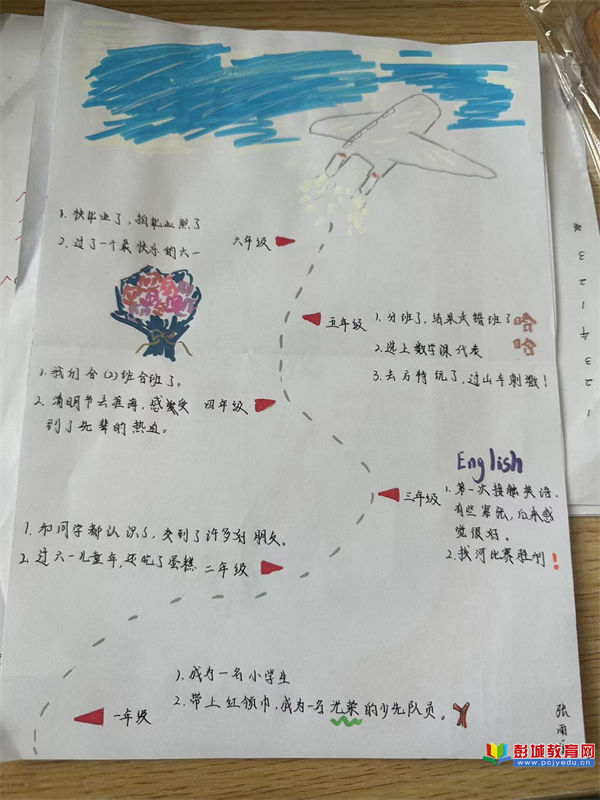 1. 快毕业了，拍毕业照了
2. 过了一个最快乐的六一
六年级
五年级
1. 分班了，结果走错班了 哈
2. 选上数学课代表 哈
3. 去方特玩了，过山车刺激！
1. 我们合(2)班合班了。
2. 清明节去淮海，感受
到了先辈的热血。
四年级
English
三年级
1. 第一次接触英语，
有些紧张，后来感
觉很好。
2. 拔河比赛胜利！
1. 和同学都认识了，交到了许多好朋友。
2. 过六一儿童年，还吃了蛋糕
二年级
1. 成为一名小学生
2. 带上红领巾，成为一名光荣的少先队员。
一年级
张雨
彭城教育网
www.pcjyedu.cn
3
2
1
4
3
2
1